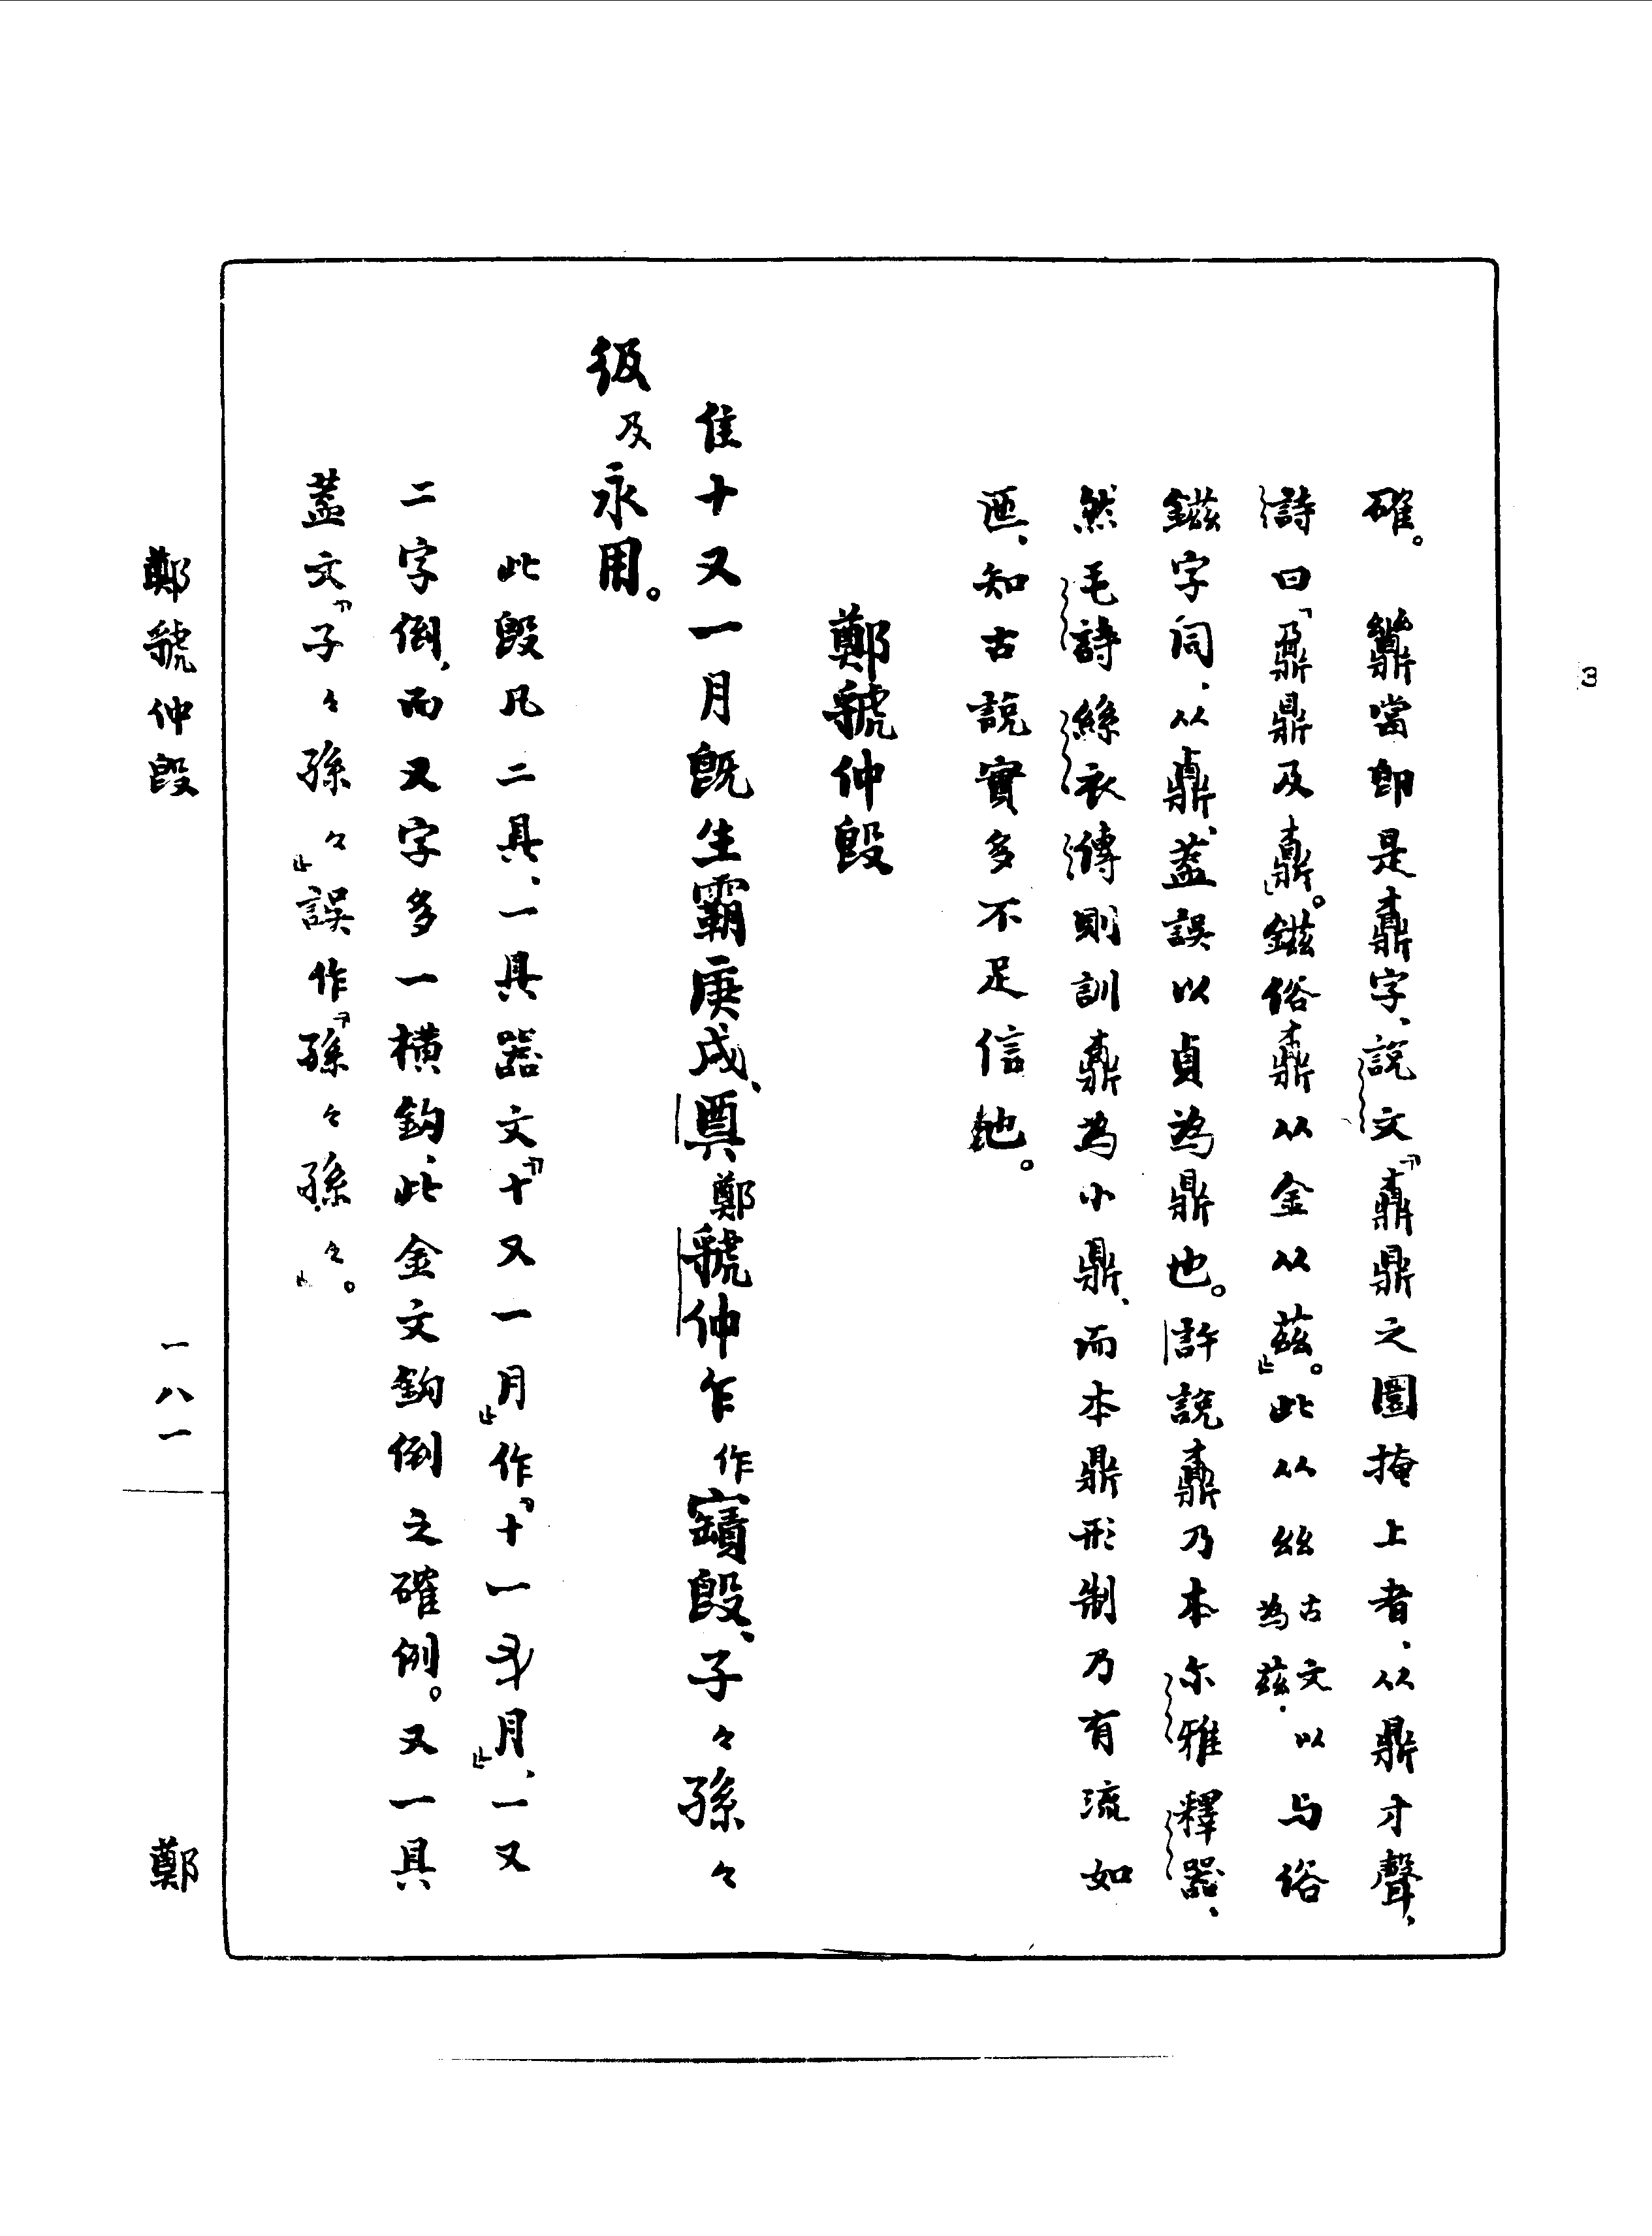 確。䵼當即是鼒字、說文「鼒鼎之圜掩上者、从鼎才聲、
詩曰『鼐鼎及鼒』。鎡俗鼒从金从茲」。此从絲古文以為茲、与俗
鎡字同、从鼎、蓋誤以貞為鼎也。許說鼒乃本尔雅釋器、
然毛詩絲衣傳則訓鼒為小鼎、而本鼎形制乃有流如
匜、知古說實多不足信也。
鄭虢仲𣪘
隹十又一月既生霸庚戌、奠鄭虢仲乍作寶𣪘、子々孫々
彶及永用。
此𣪘凡二具、一具器文「十又一月」作「十一又月」、一又
二字倒、而又字多一橫鉤、此金文鉤倒之確例。又一具
蓋文「子々孫々」誤作「孫々孫々」。
鄭虢仲𣪘
一八一
鄭
3